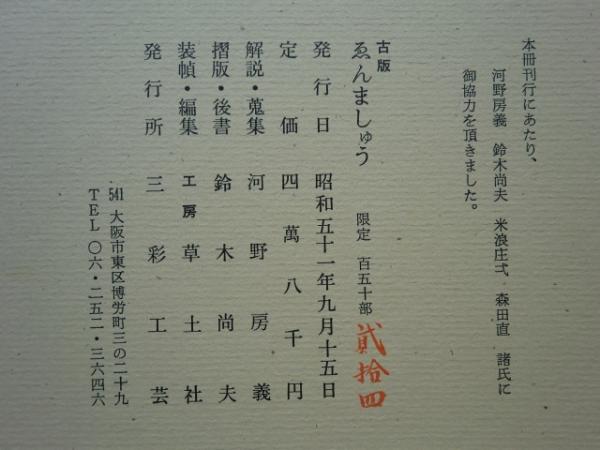 本冊刊行にあたり、
河野房義 鈴木尚夫 米浪庄弌 森田直 諸氏に
御協力を頂きました。
古版
ゑんましゅう 限定 百五十部 貳拾四
発行日 昭和五十一年九月十五日
定価 四萬八千円
解説・蒐集 河野房義
摺版・後書 鈴木尚夫
装幀・編集 工房草土社
発行所 三彩工芸
541 大阪市東区博労町三の二十九
TEL 〇六・二五二・三六四六